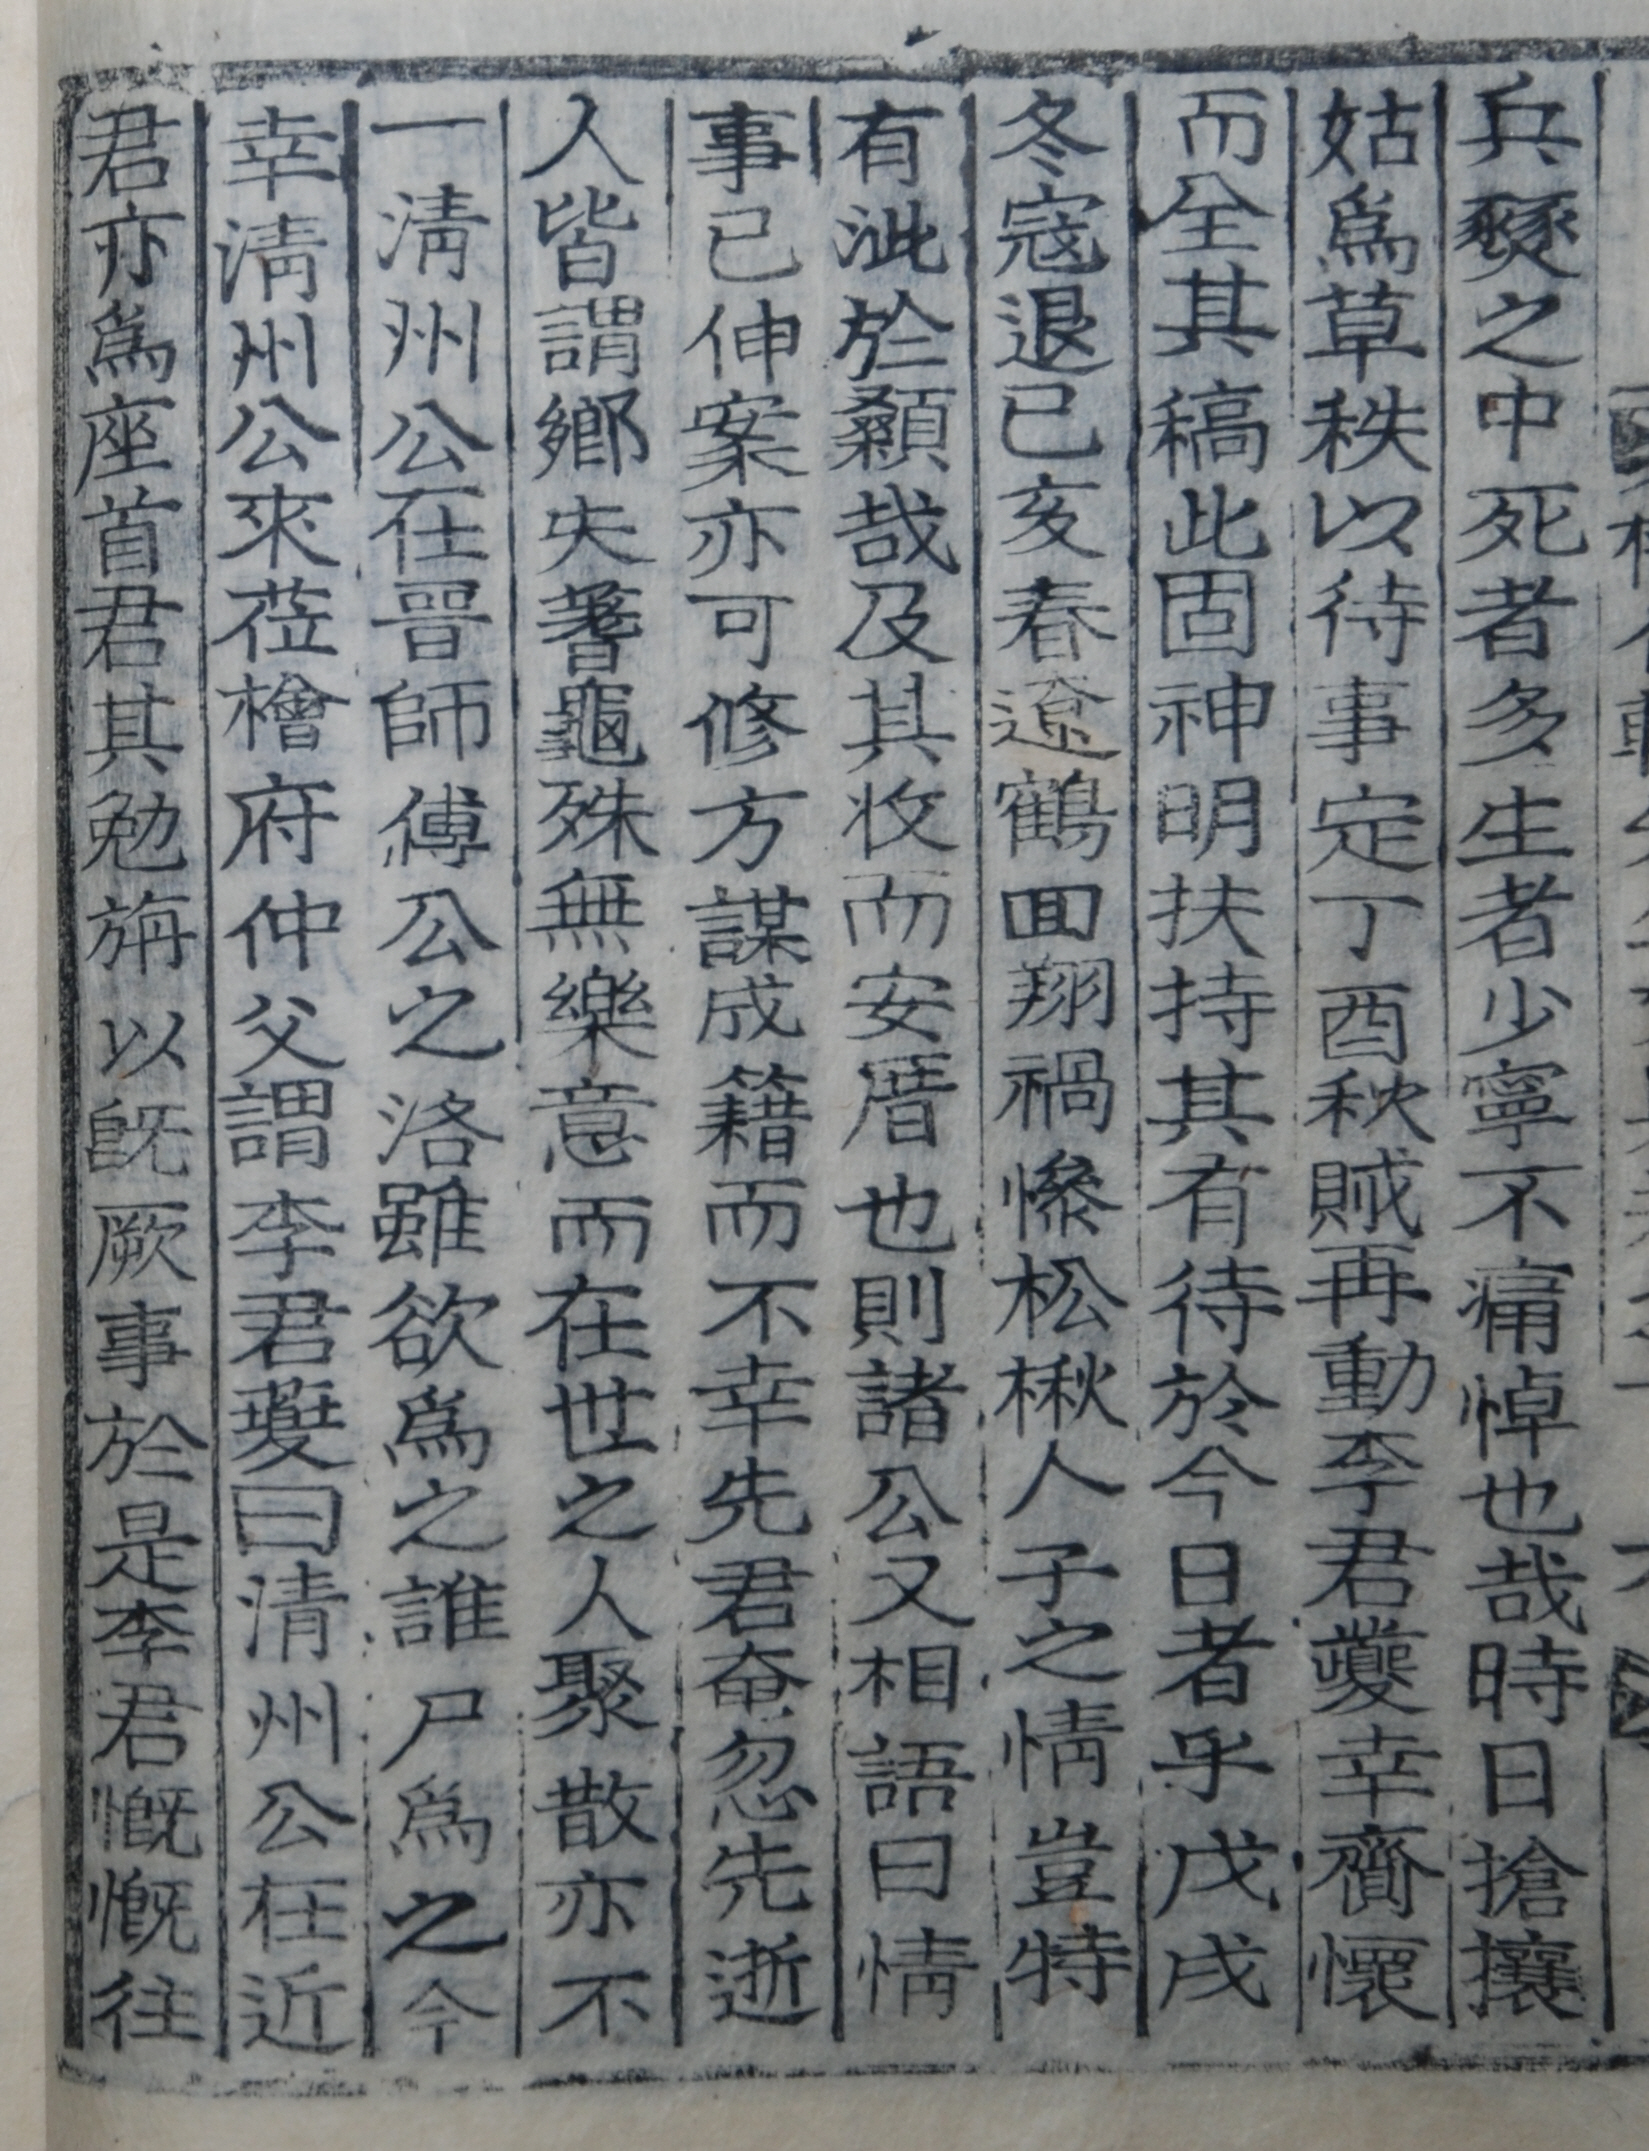 兵燹之中死者多生者少寧不痛悼也哉時日搶攘
姑爲草秩以待事定丁酉秋賊再動李君夔幸齎懷
而全其稿此固神明扶持其有待於今日者乎戊戌
冬寇退己亥春遼鶴回翔禍慘松楸人子之情豈特
有泚於顙哉及其收而安厝也則諸公又相語曰情
事已伸案亦可修方謀成籍而不幸先君奄忽先逝
人皆謂鄕失蓍龜殊無樂意而在世之人聚散亦不
一淸州公在晉師傅公之洛雖欲爲之誰尸爲之今
幸淸州公來莅檜府仲父謂李君夔曰淸州公在近
君亦爲座首君其勉旃以旣厥事於是李君慨慨往